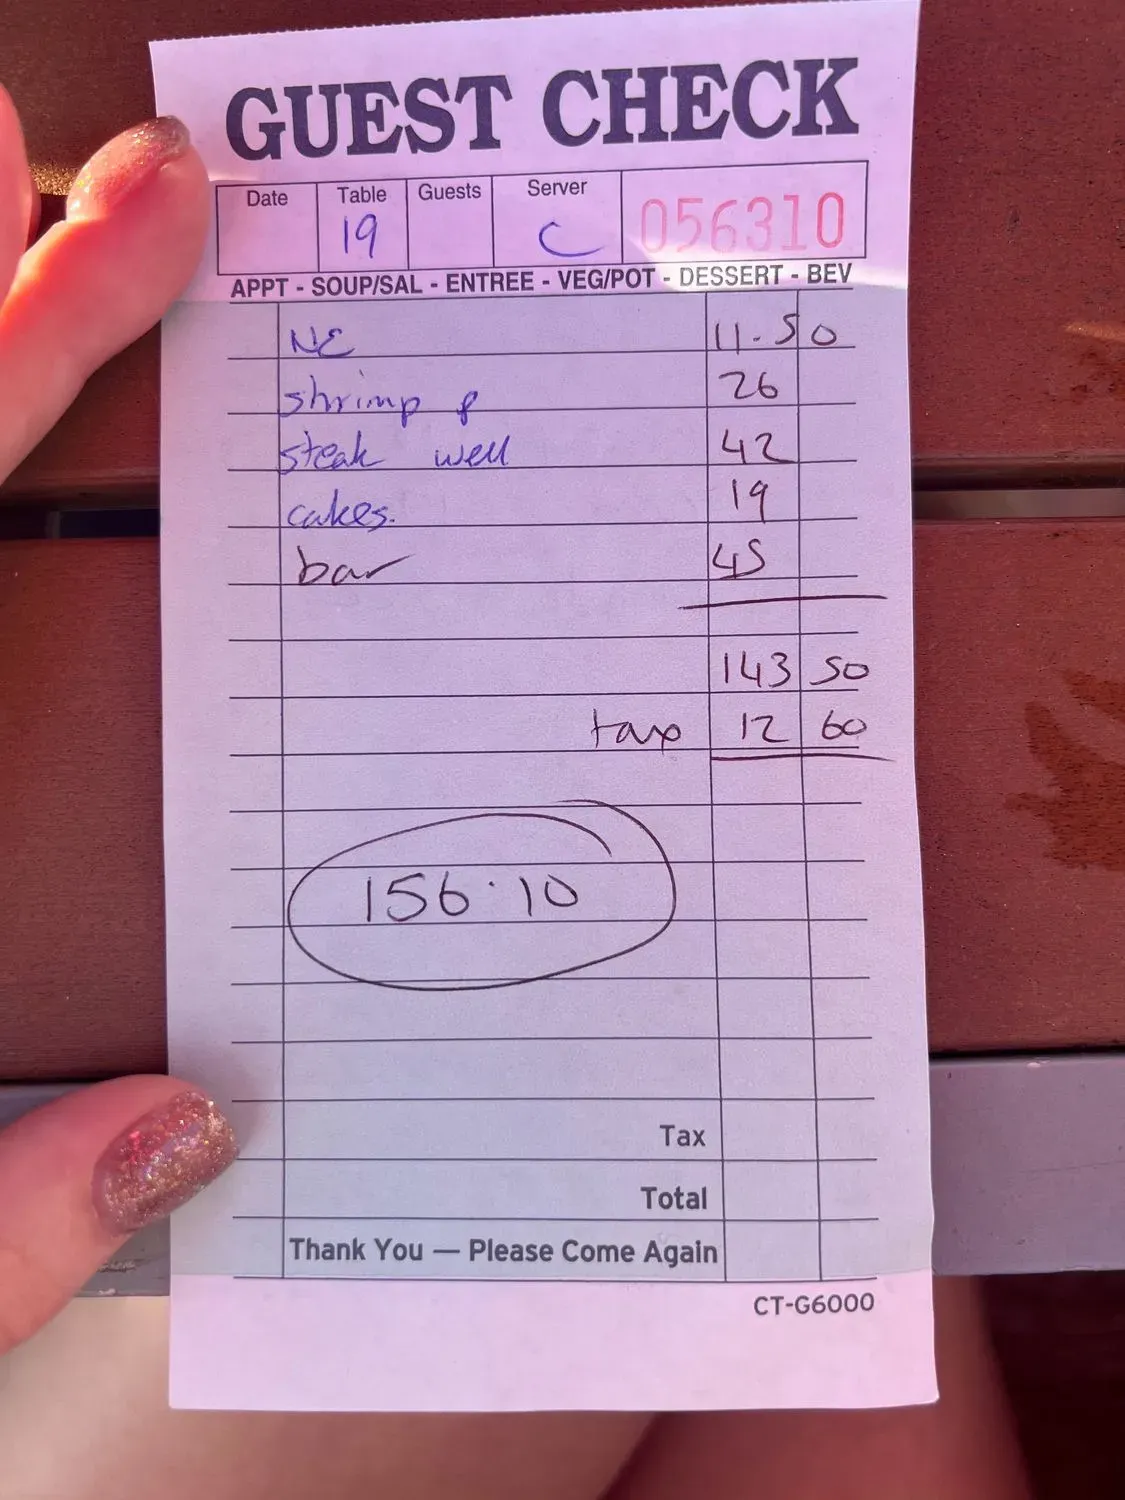 GUEST CHECK
Date Table Guests Server
19 C 056310
APPT - SOUP/SAL - ENTREE - VEG/POT - DESSERT - BEV
NE 11.50
shrimp p 26
steak well 42
cakes. 19
bar 45
143 50
tax 12 60
156.10
Tax
Total
Thank You — Please Come Again
CT-G6000